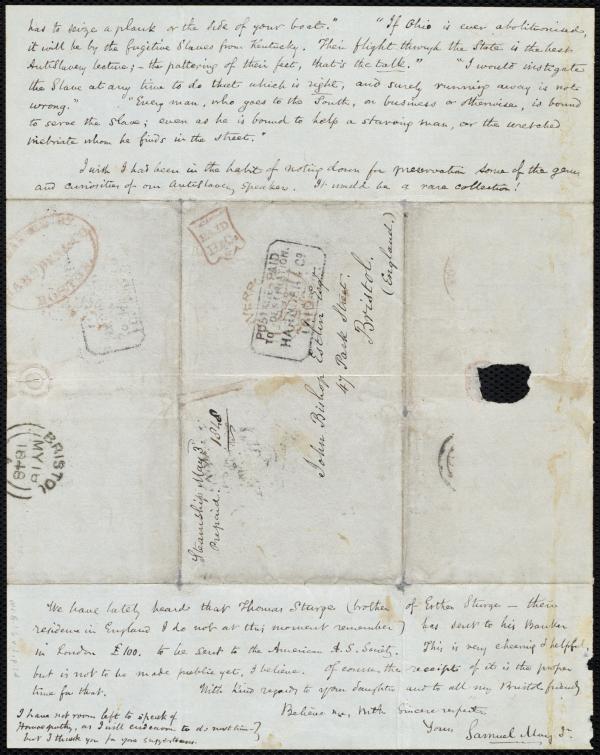 has to seize a plank or the side of your boat." "If Ohio is ever abolitionised,
it will be by the fugitive slaves from Kentucky. Their flight through the State is the best
AntiSlavery lecture; – the pattering of their feet, that's the talk." "I would instigate
the Slave at any time to do that which is right, and surely running away is not
wrong." "Every man, who goes to the South, on business or otherwise, is bound
to serve the Slave; even as he is bound to help a starving man, or the wretched
inebriate whom he finds in the street."
I wish I had been in the habit of noting down for preservation some of the gems
and curiosities of our AntiSlavery speakers. It would be a rare collection!
BOSTON
PAID
POSTAGE PAID
TO DESTINATION
HARNDEN & Co
John Bishop Estlin Esqr.
47 Park Street.
Bristol.
(England.)
Steamship May 3.
1848
Prepaid.
BRISTOL
MY 16
1848
We have lately heard that Thomas Sturge (brother of Esther Sturge – their
residence in England I do not at this moment remember) has sent to his Banker
in London £100. to be sent to the American A.S. Society. This is very cheering & helpful;
but is not to be made public yet, I believe. Of course, the receipt of it is the proper
time for that. With kind regards to your daughter and to all my Bristol friends
Believe me, With Sincere respect
Yours Samuel May Jr.
I have not room left to speak of
Homœopathy, as I will endeavor to do next time –
but I thank you for your suggestions.